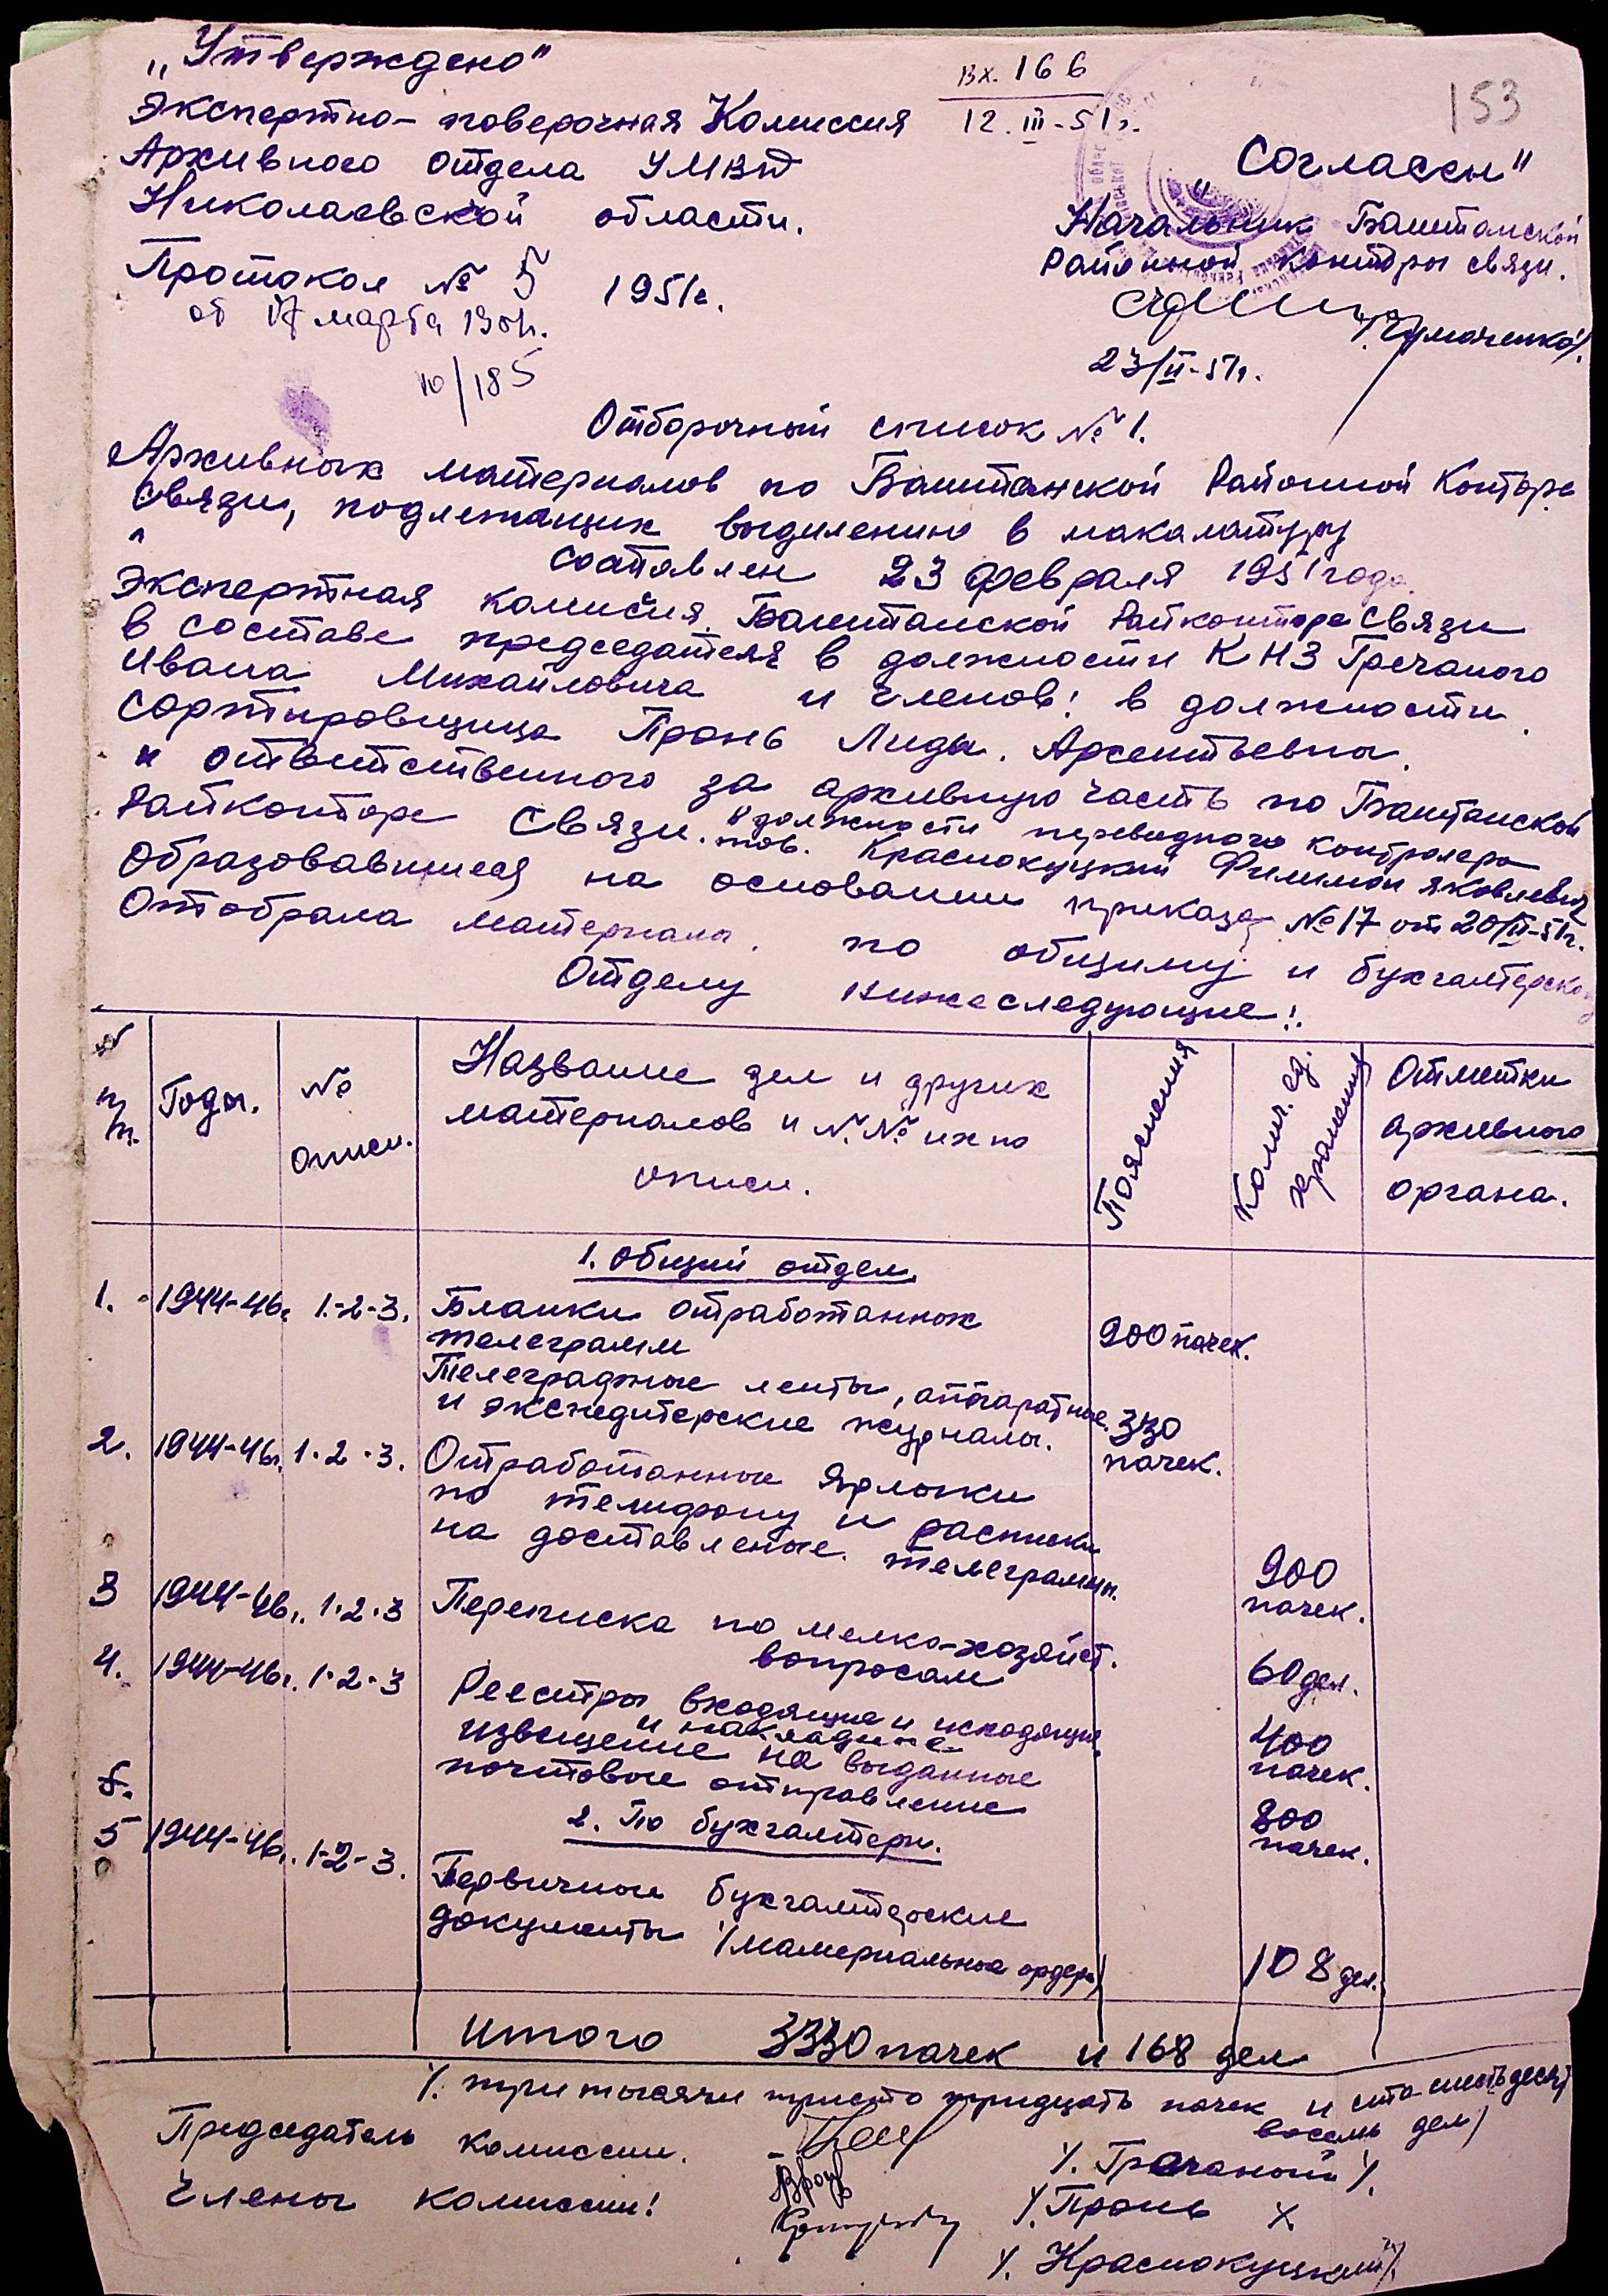 „Утверждено"
Экспертно-поверочная Комиссия
Архивного отдела УМВД
Николаевской области.
Протокол № 5 1951г.
от 17 марта 1951г.
10/185
Вх. 166
12.III-51г.
153
„Согласен"
Начальник Баштанской
Районной Конторы связи.
/Чумаченко/.
23/II-51г.
Отборочный список № 1.
Архивных материалов по Баштанской Районной Конторе
Связи, подлежащих выделению в макалатуру
составлен 23 февраля 1951 года.
Экспертная комисия Баштанской Райконторе Связи
в составе председателя в должности КНЗ Гречаного
Ивана Михайловича и членов: в должности
сортировщица Пронь Лиды Арсентьевны.
и ответственного за архивную часть по Баштанской
Райконторе Связи. в должности переводного контролера
тов. Краснокуцкий Филимон Яковлевич
Образовавшиеся на основании приказа № 17 от 20/II-51г.
Отобрала материалы по общиму и бухгалтерско
Отделу нижеследующие:
№ п/п. Годы. № описи. Название дел и других материалов и №№ их по описи. Пояснения Колич. ед. хранения Отметки архивного органа.
1. Общий отдел.
1. 1944-46г. 1-2-3. Бланки отработанных
телеграмм 900 пачек.
Телеграфные ленты, аппаратные
и экспедиторские журналы. 330
пачек.
2. 1944-46г. 1-2-3. Отработанные ярлыки
по телифону и расписки
на доставленые телеграммы. 900
пачек.
3 1944-46г. 1-2-3 Переписка по мелко-хозяйст.
вопросам 60 дел.
4. 1944-46г. 1-2-3 Реестры входящие и исходящие
и накладные 400
пачек.
извещение на выданные
почтовые отправление 800
пачек.
5.
2. По бухгалтери.
5 1944-46г. 1-2-3. Первичные бухгалтерские
документы /материальные ордера/ 108 дел.
итого 3330 пачек и 168 дел
/. три тысячи триста тридцать пачек и сто шестьдесят
восемь дел/
Председатель комиссии. /. Гречаный /.
Члены комиссии: /. Пронь /.
/. Краснокуцкий /.